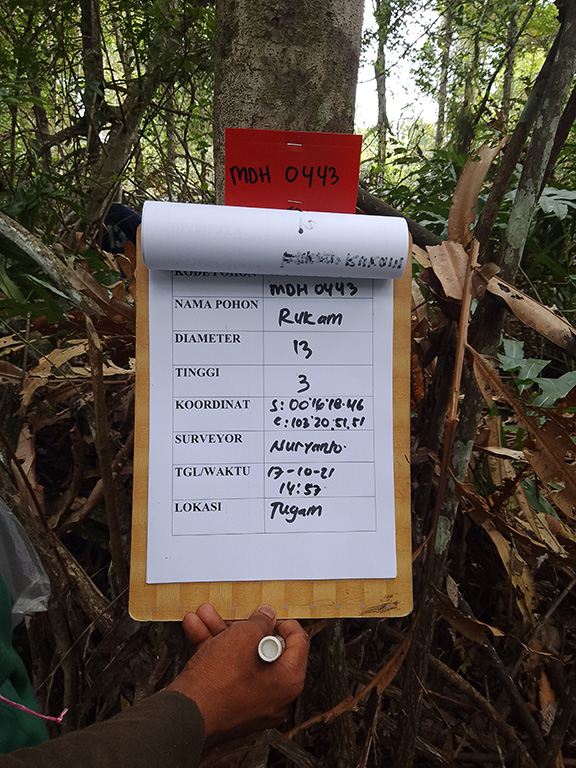 MDH 0443
KODE POHON MDH 0443
NAMA POHON Rukam
DIAMETER 13
TINGGI 3
KOORDINAT S: 00°16'18.46
E: 103°20.51.51
SURVEYOR Nuryanto.
TGL/WAKTU 17-10-21
14:57
LOKASI Tugam